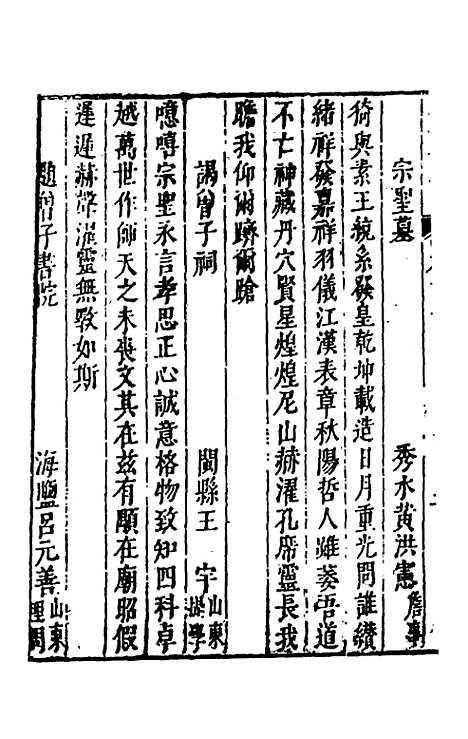 宗聖墓　秀水黄洪憲詹事
猗與素王統系發皇乾坤載造日月重光問誰纘
緒祥發嘉祥羽儀江漢表章秋陽哲人雖萎吾道
不亡神藏丹穴賢星煌煌尼山赫濯孔席靈長我
瞻我仰爾躋爾蹌
謁曾子祠　閩縣王　宇山東提學
噫嘻宗聖永言孝思正心誠意格物致知四科卓
越萬世作師天之未喪文其在兹有顒在廟昭假
遲遲赫聲濯靈無斁如斯
題曾子書院　海鹽吕元善山東理問